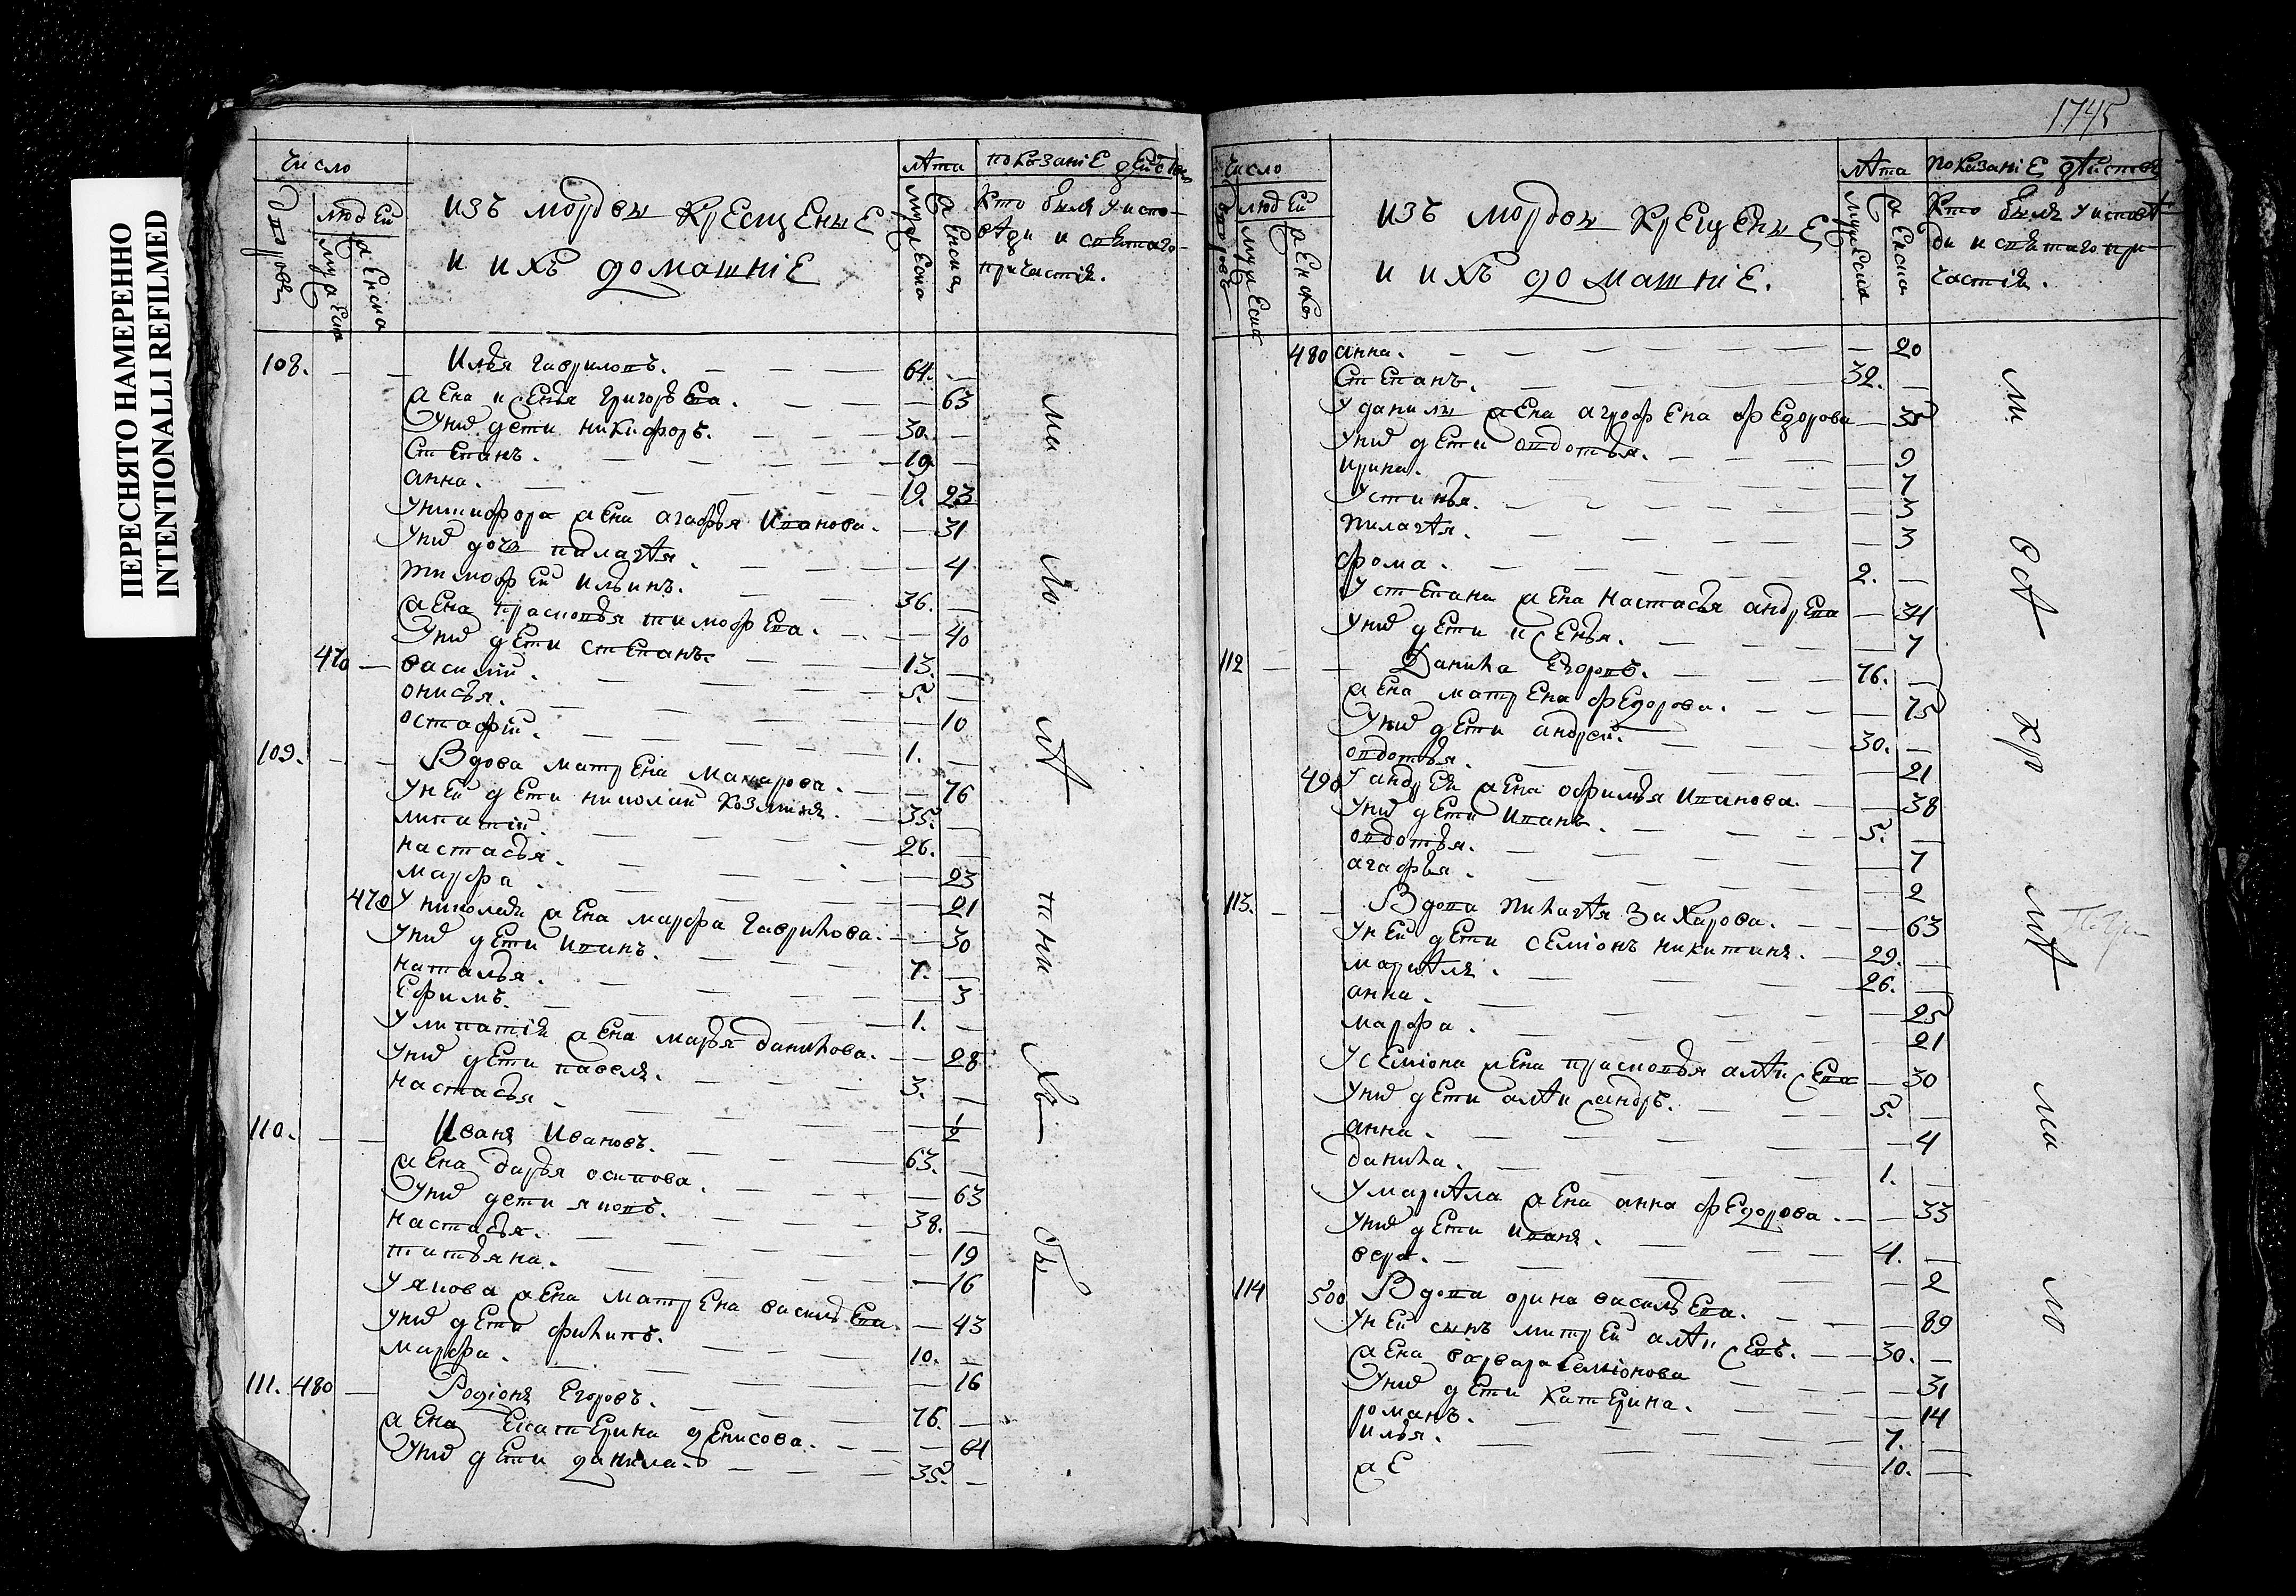 ПЕРЕСНЯТО НАМЕРЕННО
INTENTIONALLI REFILMED
число
дворовъ
людей
мужеска
женска
изъ мордвы крещеные
и ихъ домашнiе
лѣта
мужеска
женска
показанiе действа
кто былъ у испо-
вѣди и святаго
причастiя.
108. Илья гавриловъ. 64.
жена ксенья григорьева. 63
у нихъ дети никифоръ. 30.
степанъ. 19.
анна. 19. 23
у никифора жена агафья иванова. 31
у нихъ дочь пилагѣя. 4
тимофей ильинъ. 36.
жена прасковья тимофева. 40
у нихъ дети степанъ. 13.
470 василiй. 5.
онисья. 10
остафiй. 1.
109. Вдова матрена макарова. 76
у ней дети николай козминъ. 35.
липатiй. 26.
настасья. 23
марфа. 21
470 у николая жена марфа гаврилова. 30
у нихъ дети иванъ. 7.
наталья. 3
ефимъ. 1.
у липатiя жена марья данилова. 28
у нихъ дети павелъ. 3.
настасья. ½
110. Иванъ Ивановъ. 63.
жена дарья осипова. 63
у нихъ дети яковъ. 38.
настасья. 19
татьяна. 16
у якова жена матрена васильева. 43
у нихъ дети филипъ. 10.
марфа. 16
111. 480 Родiонъ Егоровъ. 76.
жена екатерина денисова. 64
у нихъ дети данила. 35.
1745
число
дворовъ
людей
мужеска
женска
изъ мордвы крещеные
и ихъ домашнiе.
лѣта
мужеска
женска
показанiе дѣиства
кто былъ у исповѣ
ди и святаго при
частiя.
480 анна. 20
степанъ. 32.
у данилы жена агрофена федорова 35
у нихъ дети овдотья. 9
ирина. 7
устинья. 5
пилагѣя. 3
фома. 2.
у степана жена настасья андрева 31
у нихъ дети ксенья. 7
112 Данила Егоровъ. 76.
жена матрена федорова. 75
у нихъ дети андрей. 30.
овдотья. 21
490 у андрея жена офимья иванова. 38
у нихъ дети иванъ. 5.
овдотья. 7
агафья. 2
113. Вдова пилагѣя захарова. 63
у ней дети семiонъ никитинъ. 29.
маркѣлъ. 26.
анна. 25
марфа. 21
у семiона жена прасковья алѣксева 30
у нихъ дети алѣксандръ. 5.
анна. 4
данила. 1.
у маркѣла жена анна федорова. 33
у нихъ дети иванъ. 4.
вера. 2
114 500 Вдова орина васильева. 89
у ней сынъ митрей алѣксевъ. 30.
жена варвара семiонова 31
у нихъ дети катерина. 14
романъ. 7.
илья. 10.
же